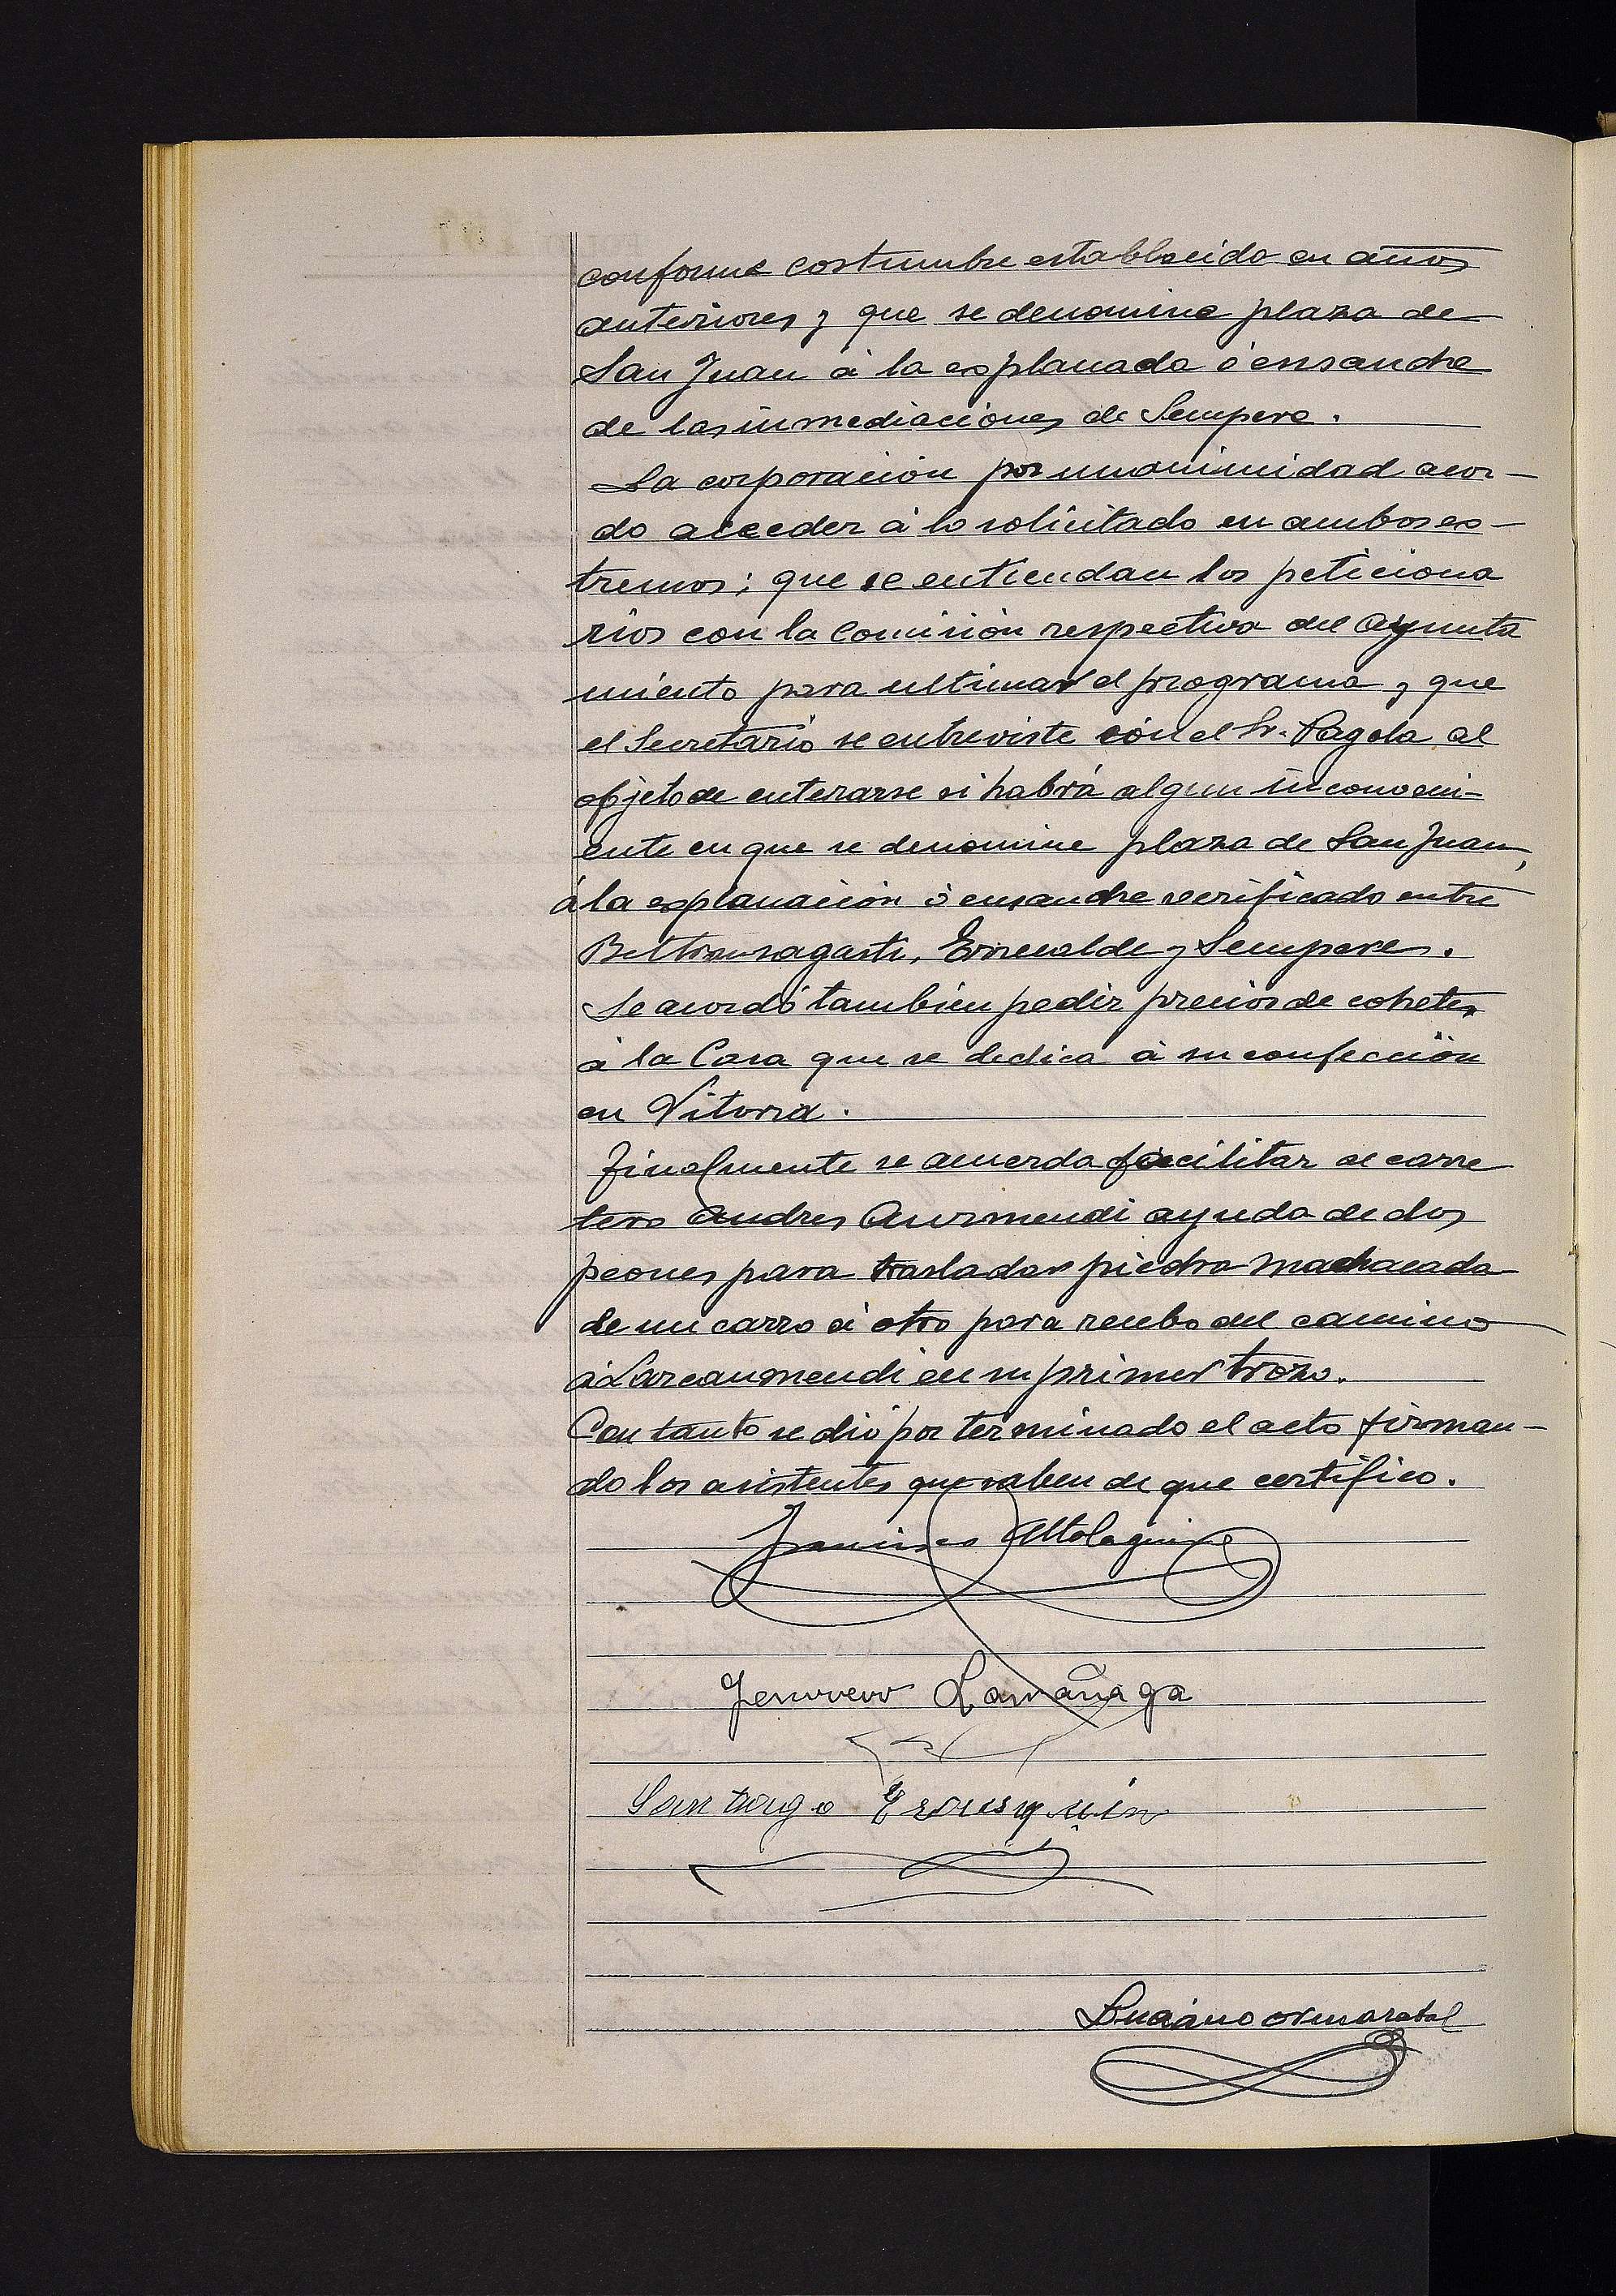 conforme costumbre establecido en años
anteriores y que se denomine plaza de
San Juan á la esplanada ó ensanche
de las inmediaciones de Sempere.
La corporación por unanimidad acor-
do acceder á lo solicitado en ambos es-
tremos; que se entiendan los peticiona
rios con la Comisión respectiva del Ayunta
miento para ultimar el programa y que
el Secretario se entreviste con el Sr. Pagola al
objeto de enterarse si habrá algun inconveni-
ente en que se denomine plaza de San Juan,
á la esplanación ó ensanche verificado entre
Beltransagasti, Errevalde y Sempere.
Se acordó tambien pedir precios de cohetes
á la Casa que se dedica á su confección
en Vitoria.
Finalmente se acuerda facilitar al carre
tero Andres Auzmendi ayuda de dos
peones para trasladar piedra machacada
de un carro á otro para recebo del camino
á Larcaumendi en su primer trozo.
Con tanto se dió por terminado el acto firman-
do los asistentes que saben de que certifico.
Francisco Altolaguirre
Jenovevo Larrañaga
Santiago Erausquin
Luciano Ormazabal